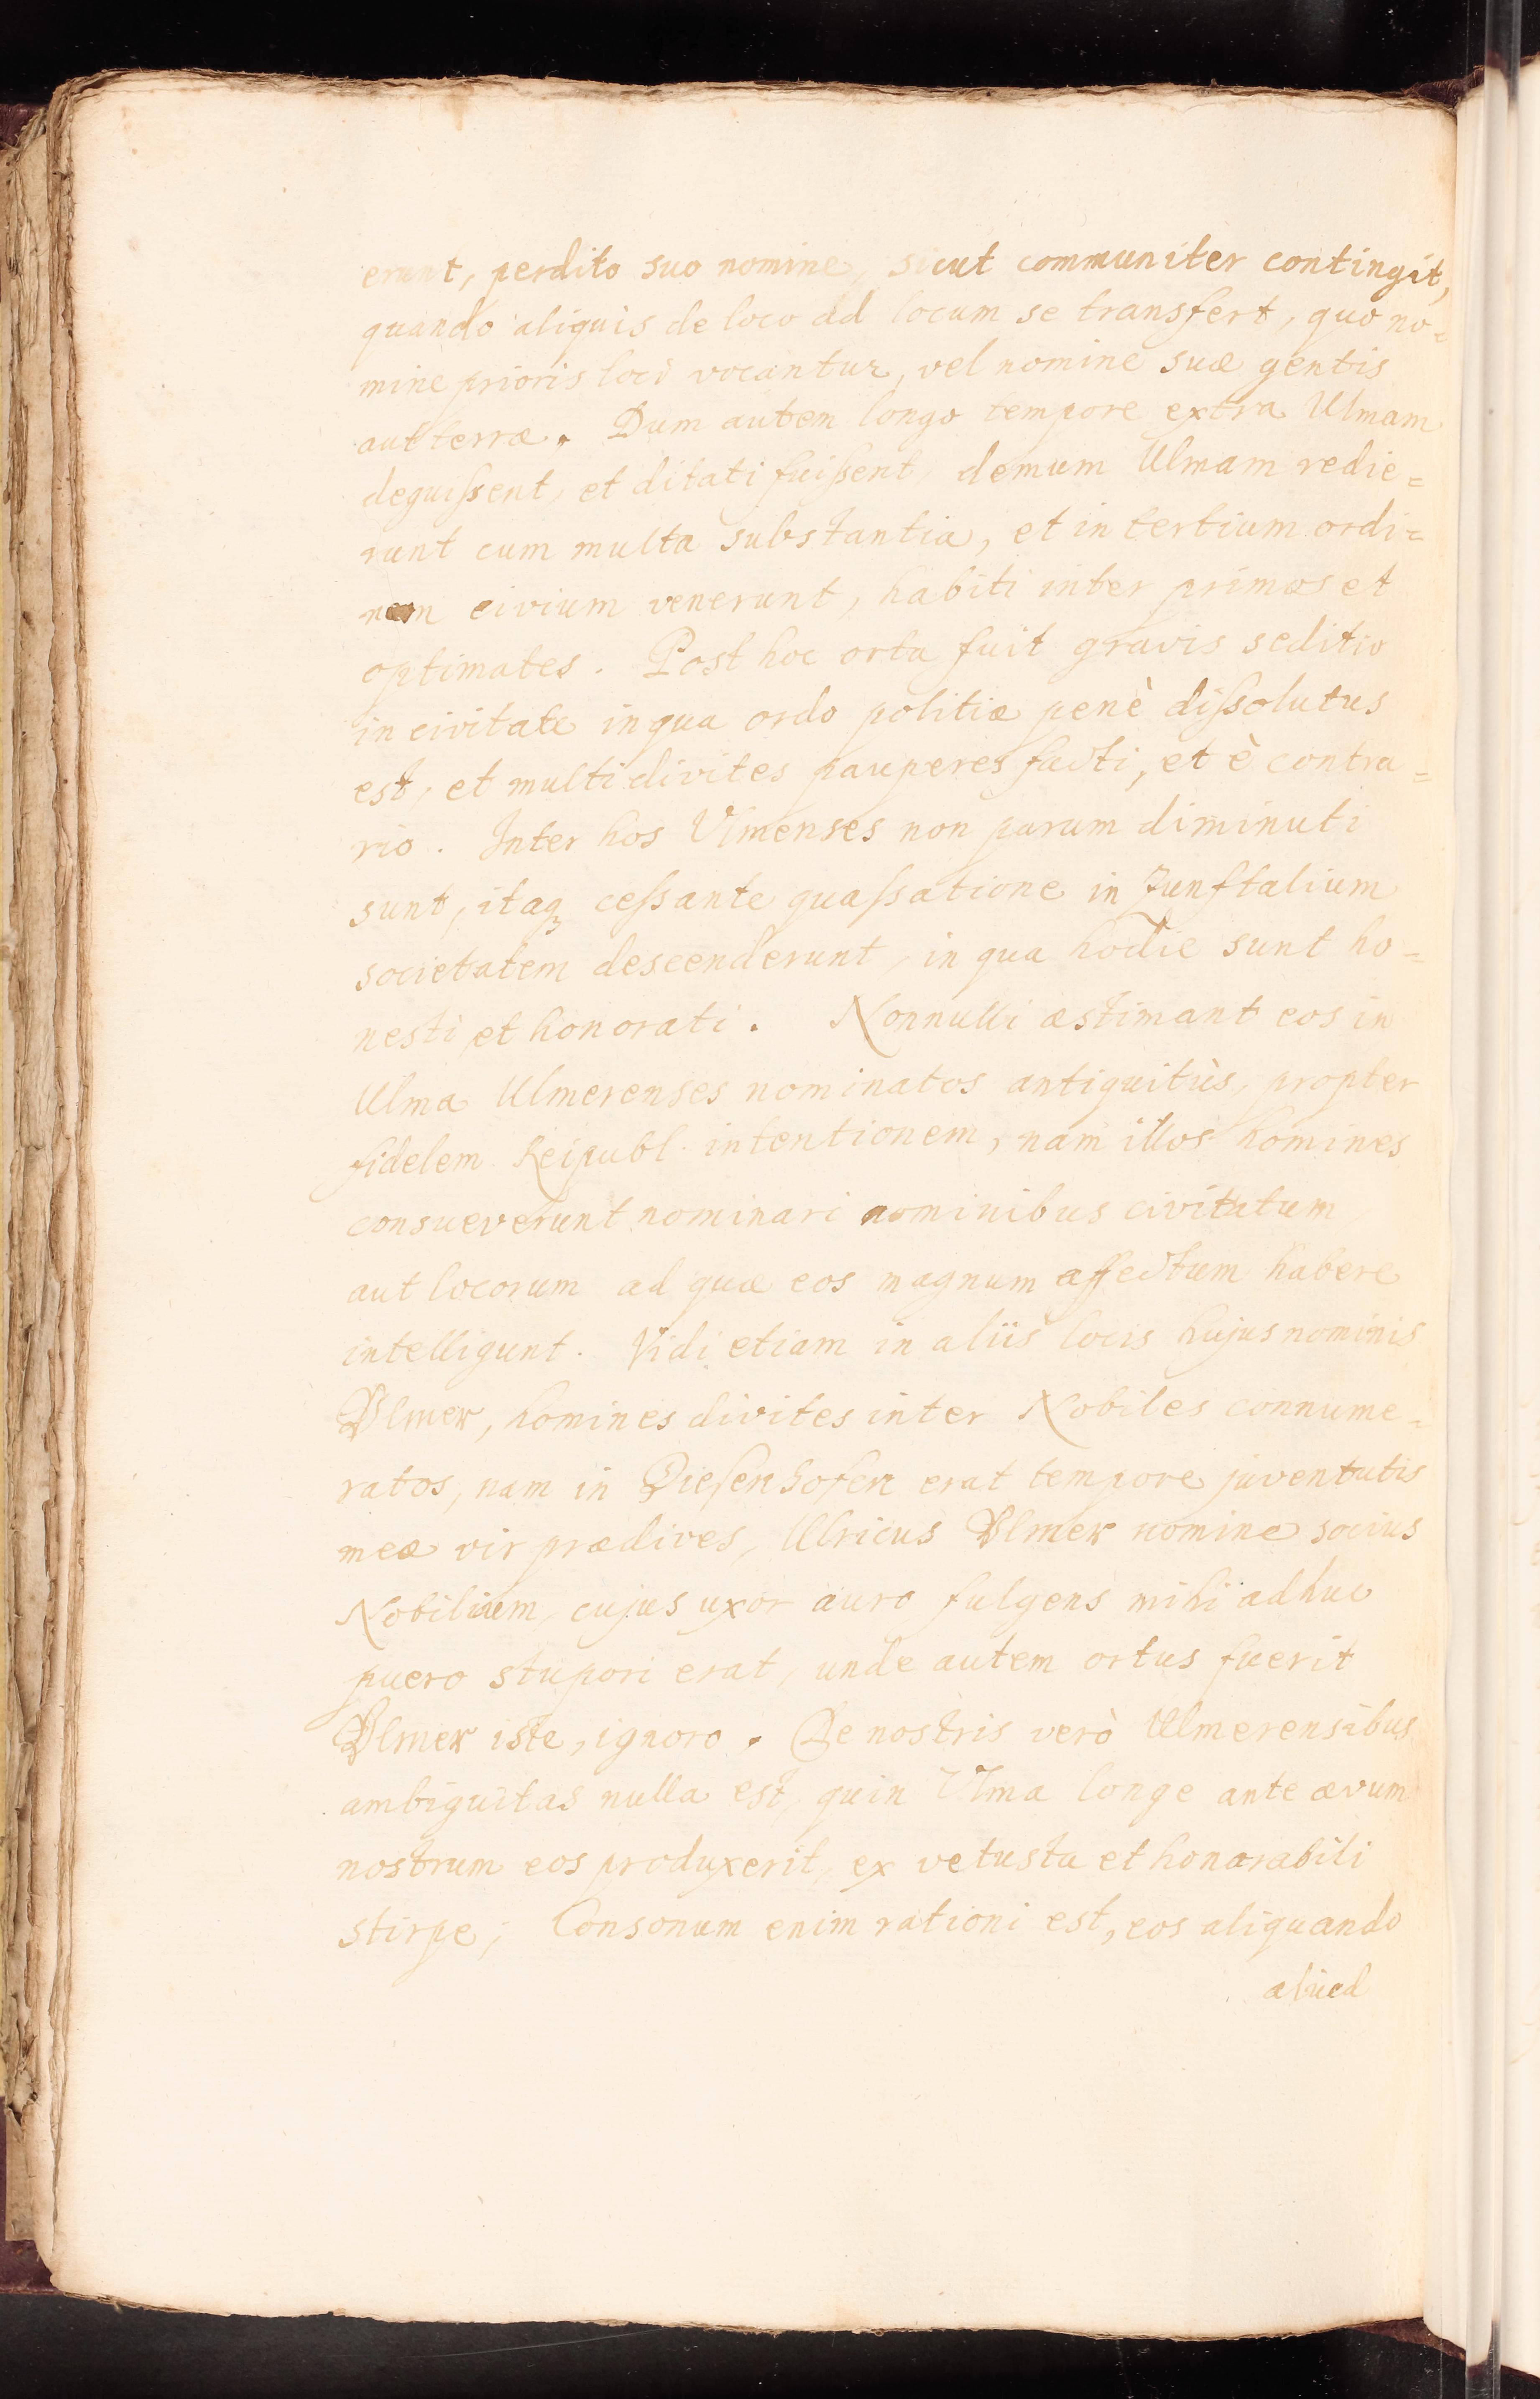 erunt, perdito suo nomine, sicut communiter contingit,
quando aliquis de loco ad locum se transfert, quo no=
mine prioris loci vocantur, vel nomine suæ gentis
aut terræ. Dum autem longo tempore extra Ulmam
deguissent, et ditati fuissent, demum Ulmam redie=
runt cum multa substantia, et in tertium ordi=
nem civium venerunt, habiti inter primos et
optimates. Post hoc orta fuit gravis seditio
in civitate in qua ordo politiæ penè dissolutus
est, et multi divites pauperes facti, et è contra=
rio. Inter hos Vlmenses non parum diminuti
sunt, itaqꝫ cessante quassatione in Zunftalium
societatem descenderunt, in qua hodie sunt ho=
nesti et honorati. Nonnulli æstimant eos in
Ulma Ulmerenses nominatos antiquitùs, propter
fidelem Reipubl. intentionem, nam illos homines
consueverunt nominari nominibus civitatum
aut locorum ad quæ eos magnum affectum habere
intelligunt. Vidi etiam in aliis locis hujus nominis
Vlmer, homines divites inter Nobiles connume=
ratos, nam in Diesenhofen erat tempore juventutis
meæ vir prædives, Ulricus Vlmer nomine socius
Nobilium, cujus uxor auro fulgens mihi adhuc
puero stupori erat, unde autem ortus fuerit
Vlmer iste, ignoro. De nostris verò Ulmerensibus
ambiguitas nulla est, quin Vlma longe ante ævum
nostrum eos produxerit, ex vetusta et honorabili
stirpe; Consonum enim rationi est, eos aliquando
aliud